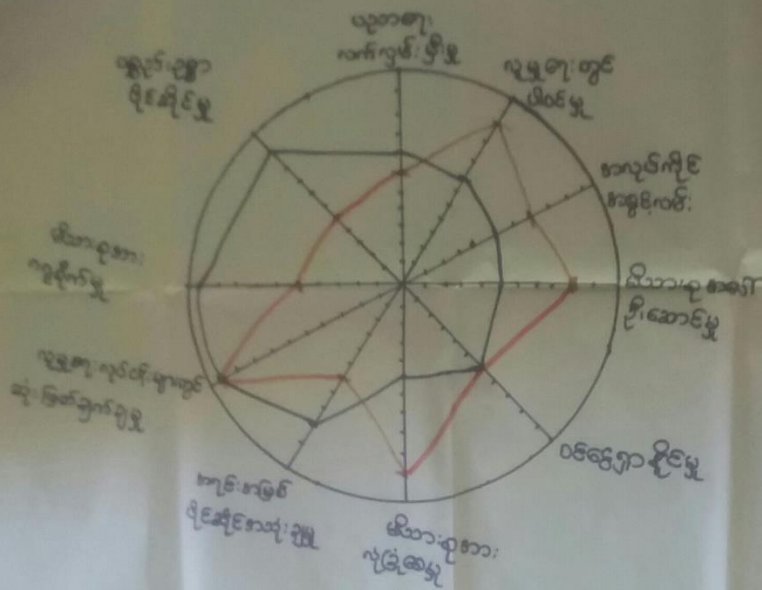 ပညာရေး
လက်လှမ်းမှီမှု
လူမှုရေးတွင်
ပါဝင်မှု
အလုပ်ကိုင်
အခွင့်လမ်း
မိသားစုအပေါ်
ဦးဆောင်မှု
ဝင်ငွေရှာနိုင်မှု
မိသားစုအား
လုံခြုံစေမှု
အရင်းအမြစ်
ပိုင်ဆိုင်အသုံးချမှု
လူမှုရေးလုပ်ငန်းများတွင်
ဆုံးဖြတ်ချက်ချမှု
မိသားစုအား
ကျွေးမှု
ပစ္စည်းဥစ္စာ
ပိုင်ဆိုင်မှု